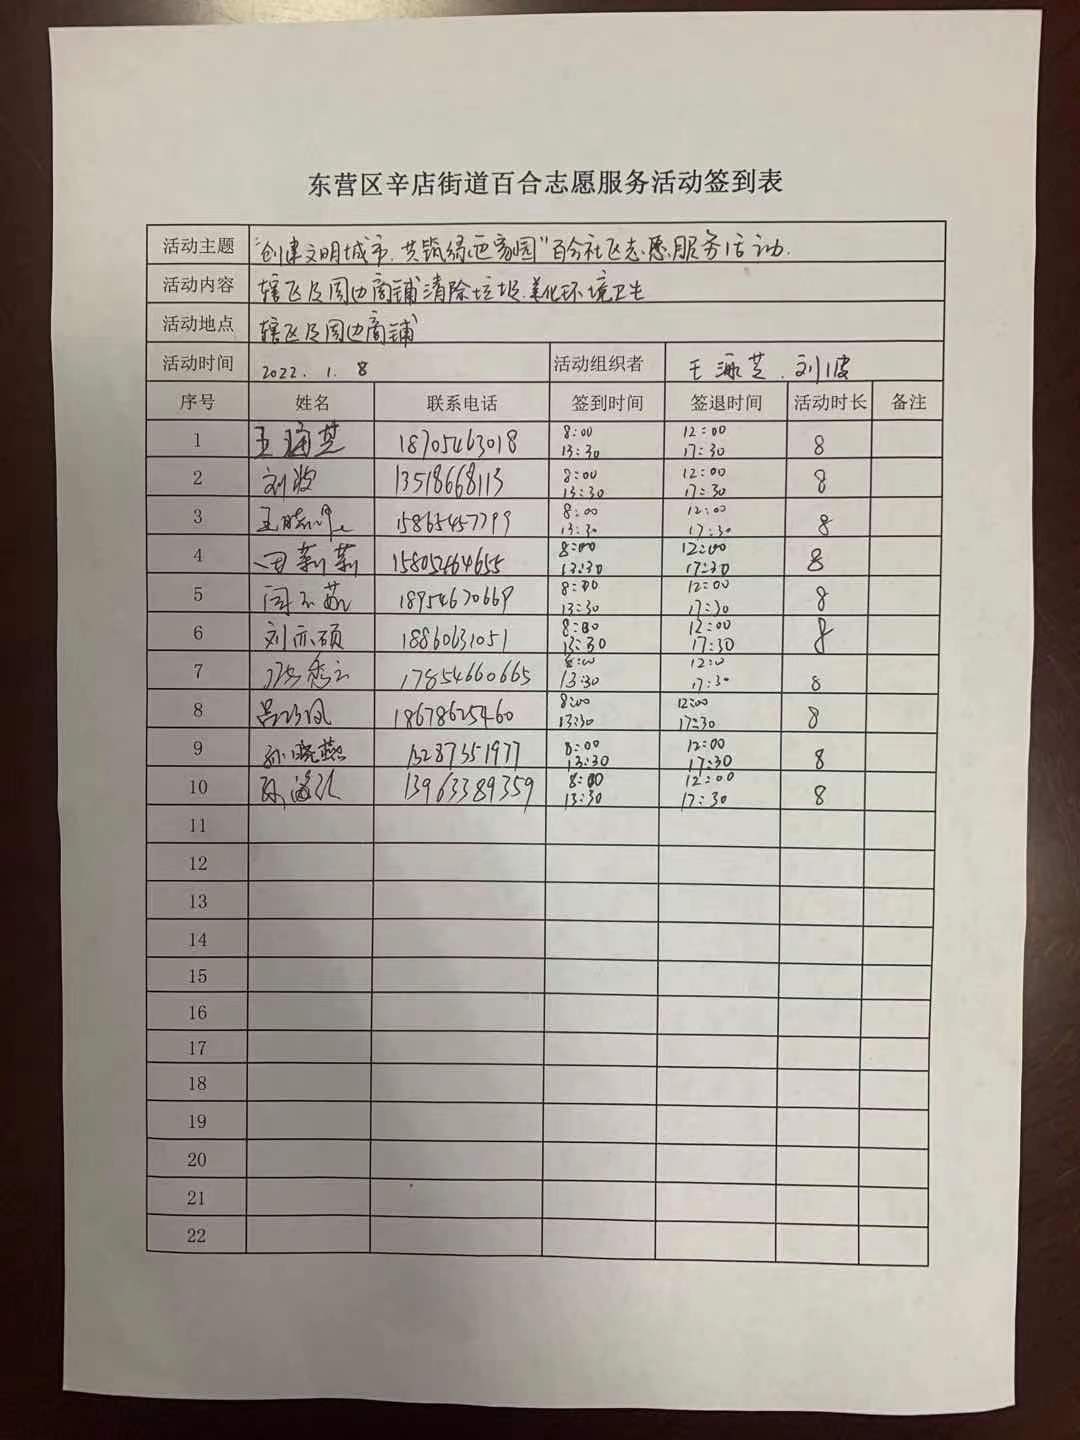 东营区辛店街道百合志愿服务活动签到表
活动主题 "创建文明城市.共筑绿色家园"百合社区志愿服务活动.
活动内容 辖区及周边商铺清除垃圾.美化环境卫生
活动地点 辖区及周边商铺
活动时间 2022.1.8 活动组织者 王 芝.刘波
序号 姓名 联系电话 签到时间 签退时间 活动时长 备注
1 18705463018 8:00 12:00 8
13:30 17:30
2 刘波 13518668113 8:00 12:00 8
13:30 17:30
3 15865457799 8:00 12:00 8
13:30 17:30
4 田莉莉 15805464655 8:00 12:00 8
13:30 17:30
5 18954670669 8:00 12:00 8
13:30 17:30
6 刘亦硕 18860631051 8:00 12:00 8
13:30 17:30
7 17854660665 8:00 12:00 8
13:30 17:30
8 18678625460 8:00 12:00 8
13:30 17:30
9 孙晓燕 15287351977 8:00 12:00 8
13:30 17:30
10 13963389359 8:00 12:00 8
13:30 17:30
11
12
13
14
15
16
17
18
19
20
21
22